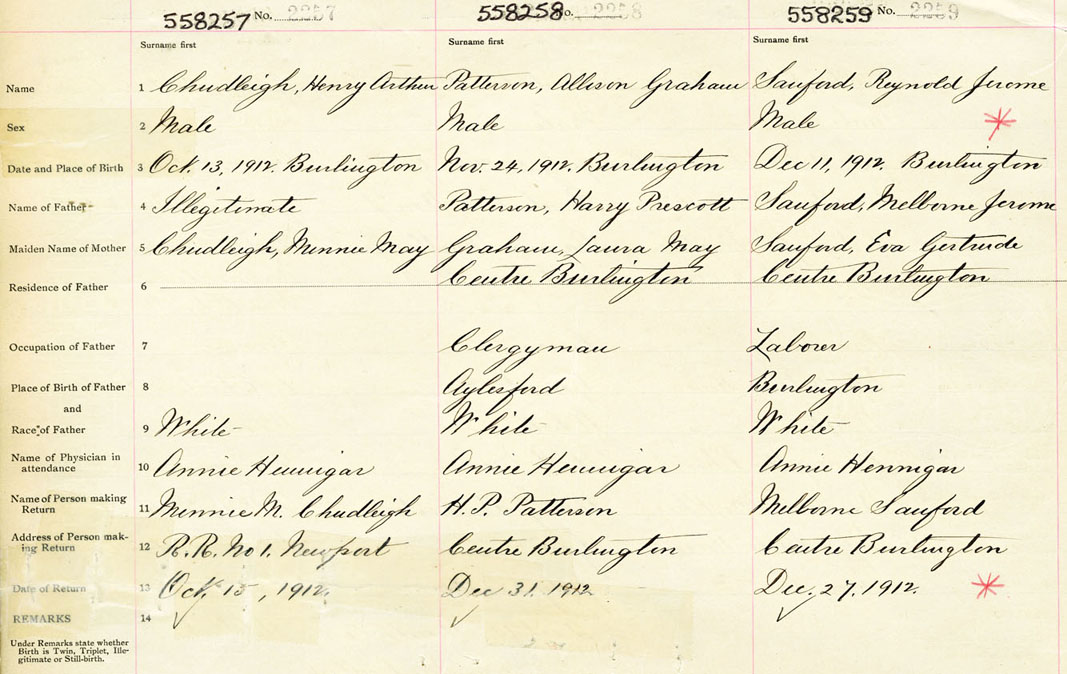 558257 No. 2257 558258 No. 2258 558259 No. 2259
Surname first Surname first Surname first
Name 1 Chudleigh, Henry Arthur Patterson, Allison Graham Sanford, Reynold Jerome
Sex 2 Male Male Male
Date and Place of Birth 3 Oct. 13, 1912. Burlington Nov. 24, 1912. Burlington Dec 11, 1912. Burlington
Name of Father 4 Illegitimate Patterson, Harry Prescott Sanford, Melborne Jerome
Maiden Name of Mother 5 Chudleigh, Minnie May Graham, Laura May Sanford, Eva Gertrude
Residence of Father 6 Centre Burlington Centre Burlington
Occupation of Father 7 Clergyman Laborer
Place of Birth of Father 8 Aylesford Burlington
and
Race of Father 9 White White White
Name of Physician in
attendance 10 Annie Hennigar Annie Hennigar Annie Hennigar
Name of Person making
Return 11 Minnie M. Chudleigh H. P. Patterson Melborne Sanford
Address of Person mak-
ing Return 12 R. R. No 1. Newport Centre Burlington Centre Burlington
Date of Return 13 Oct. 15, 1912. Dec 31. 1912. Dec. 27, 1912.
REMARKS 14
Under Remarks state whether
Birth is Twin, Triplet, Ille-
gitimate or Still-birth.